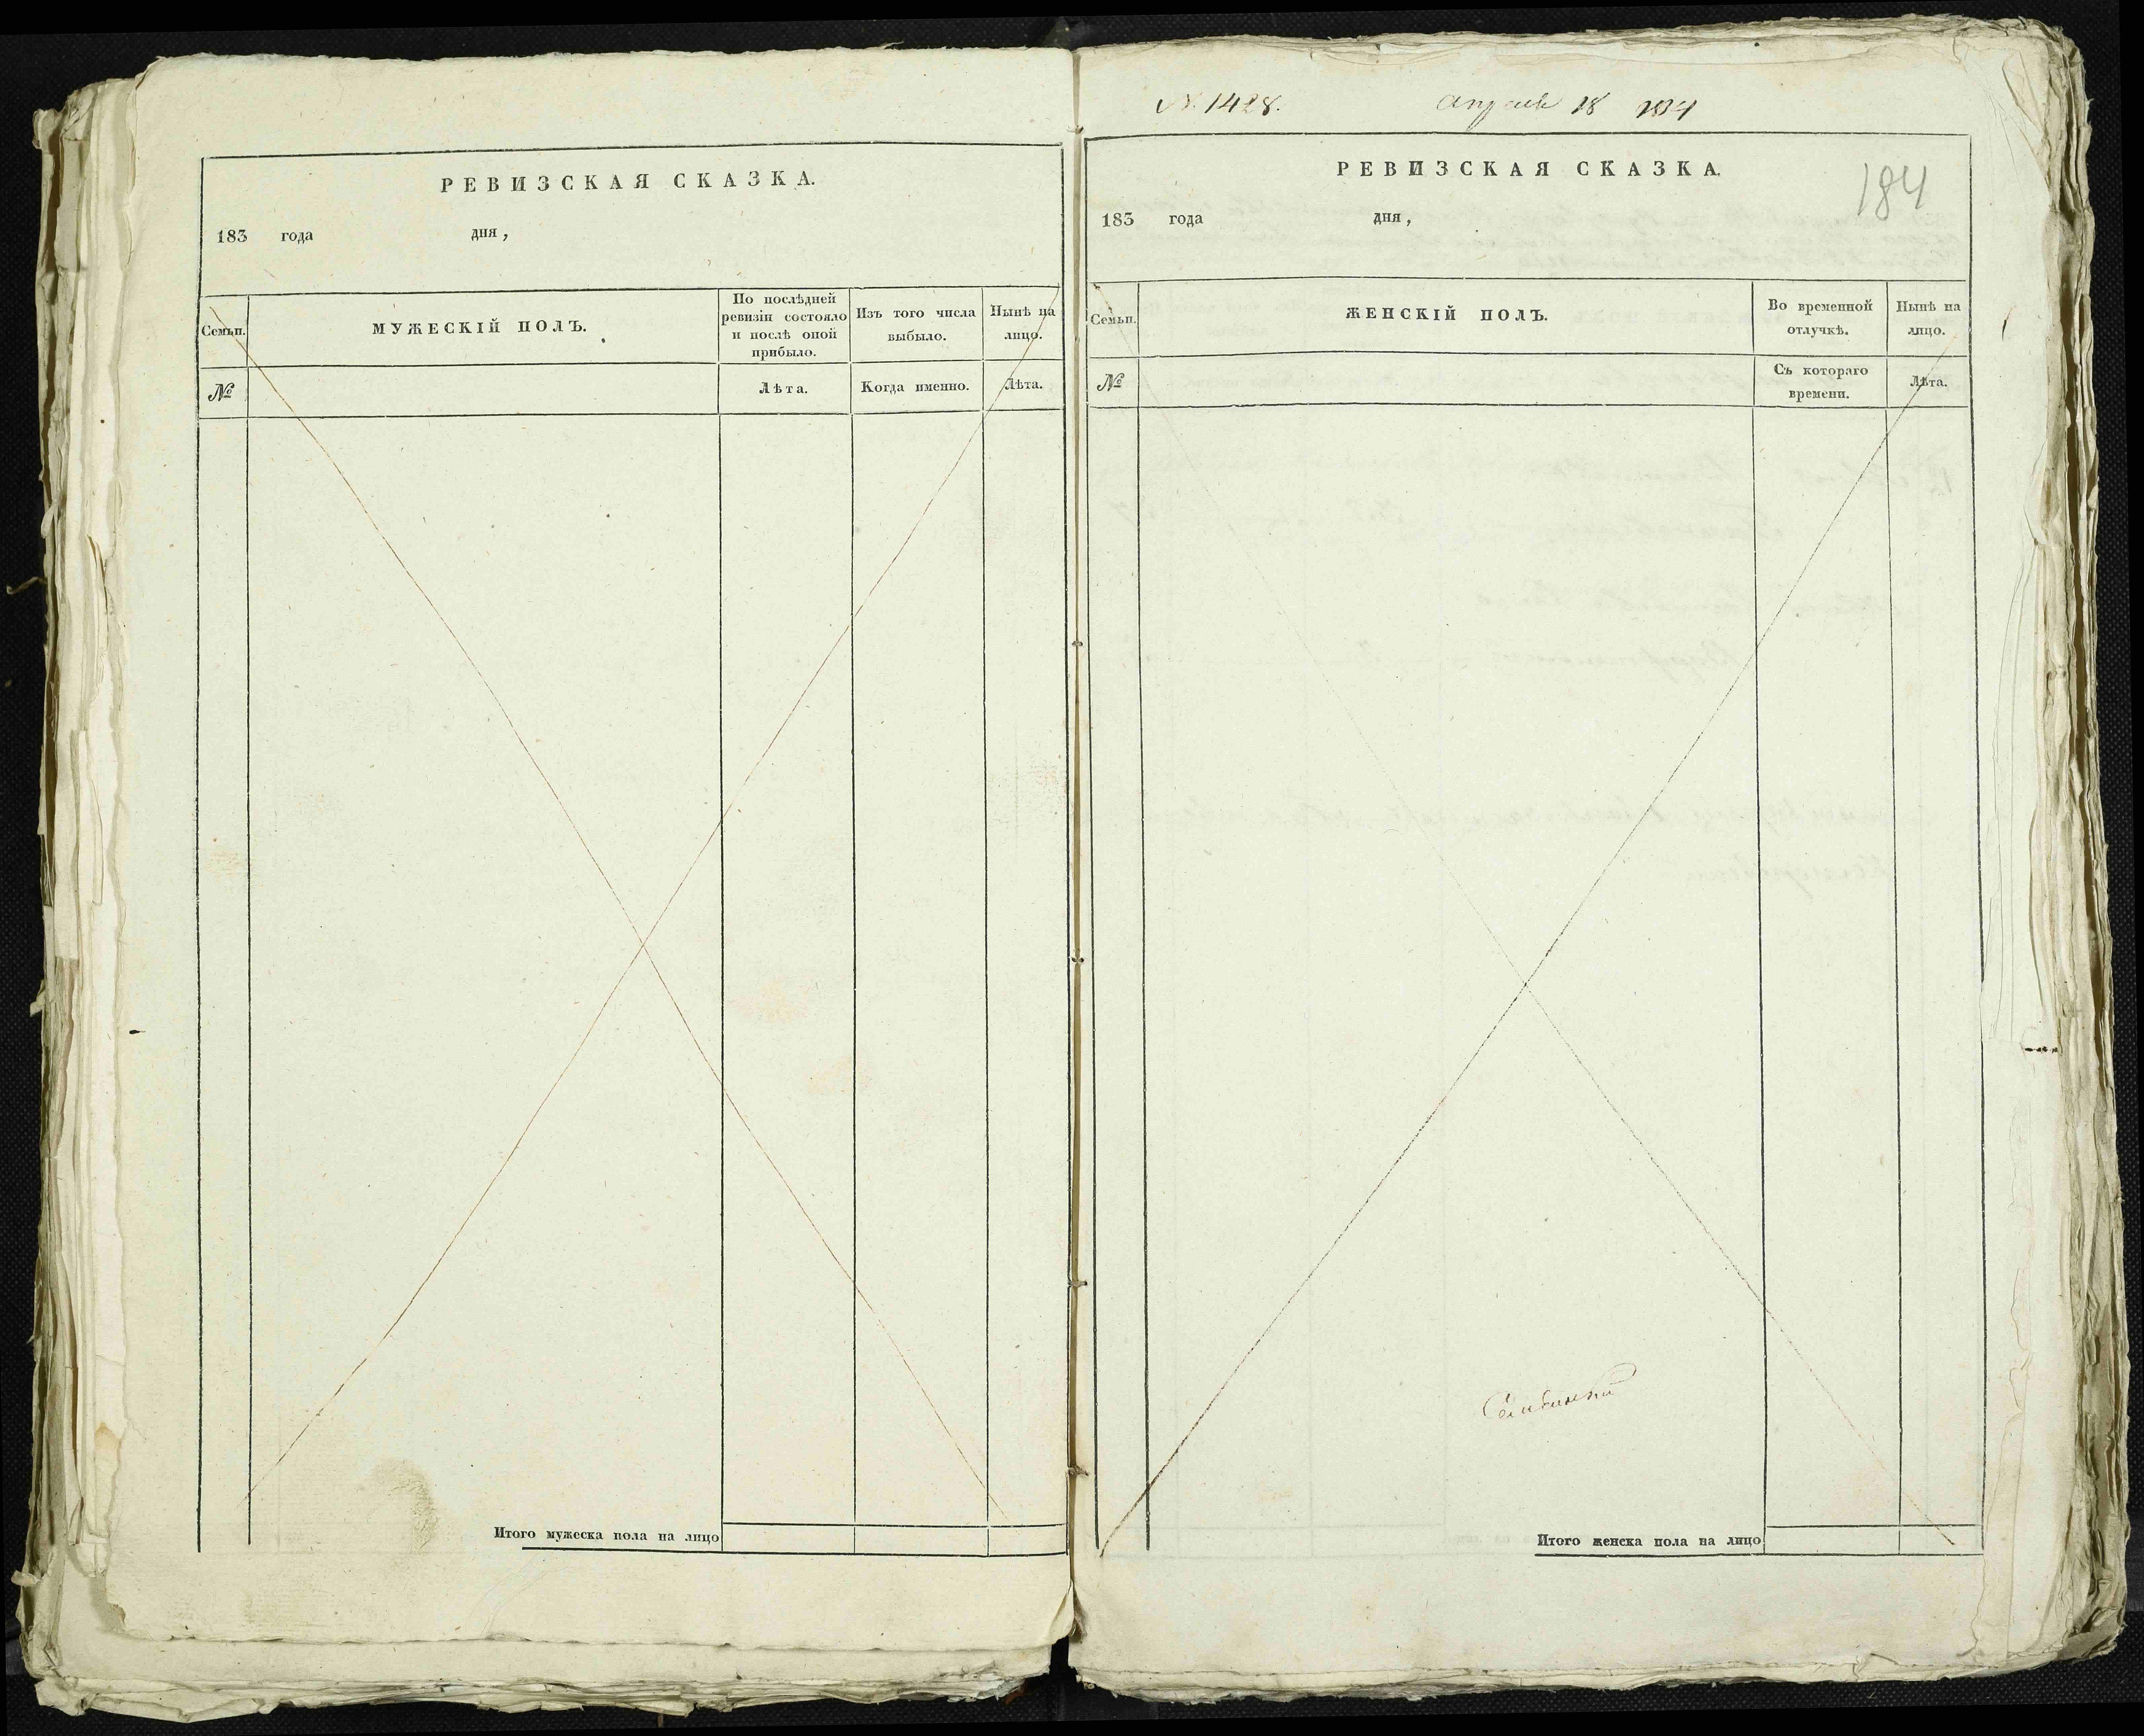 РЕВИЗСКАЯ СКАЗКА.
183 года дня,
Семьи.
МУЖЕСКІЙ ПОЛЪ.
По послѣдней ревизіи состояло и послѣ оной прибыло.
Изъ того числа выбыло.
Нынѣ на лицо.
№
Лѣта.
Когда именно.
Лѣта.
Итого мужеска пола на лицо
№. 1428. Апреля 18 1834
РЕВИЗСКАЯ СКАЗКА.
184
183 года дня,
Семьи.
ЖЕНСКІЙ ПОЛЪ.
Во временной отлучкѣ.
Нынѣ на лицо.
№
Съ котораго времени.
Лѣта.
Итого женска пола на лицо